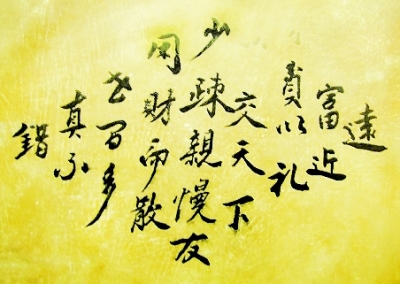 遠
富近
貴以礼
交天下
少疎親慢友
財而散
百多
真不
錯